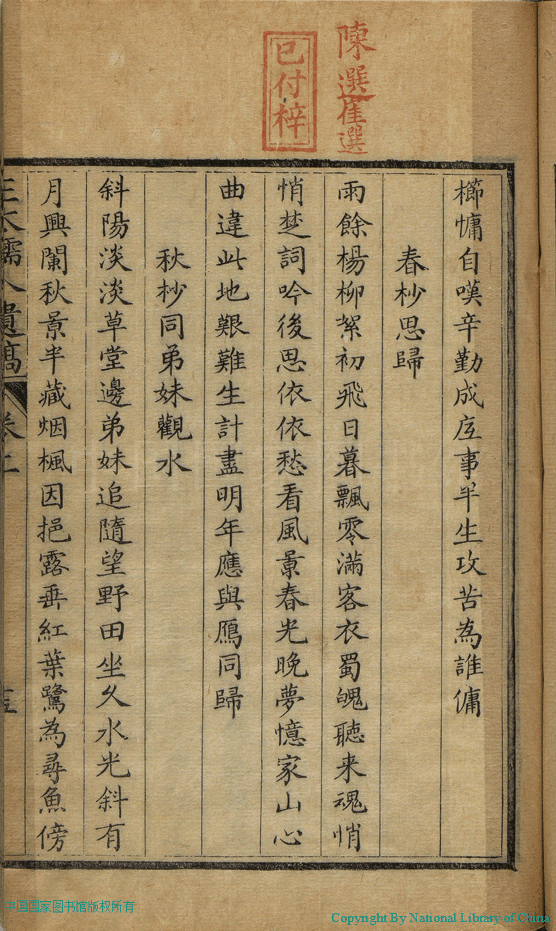 陳選崔選
已付梓
櫛慵自嘆辛勤成底事半生攻苦為誰傭
春杪思歸
雨餘楊柳絮初飛日暮飄零滿客衣蜀魄聽来魂悄
悄楚詞吟後思依依愁看風景春光晚夢憶家山心
曲違此地艱難生計盡明年應與鴈同歸
秋杪同弟妹觀水
斜陽淡淡草堂邊弟妹追隨望野田坐久水光斜有
月興闌秋景半藏烟楓因挹露垂紅葉鷺為尋魚傍
遺稿 卷上
中国国家图书馆版权所有
Copyright By National Library of China